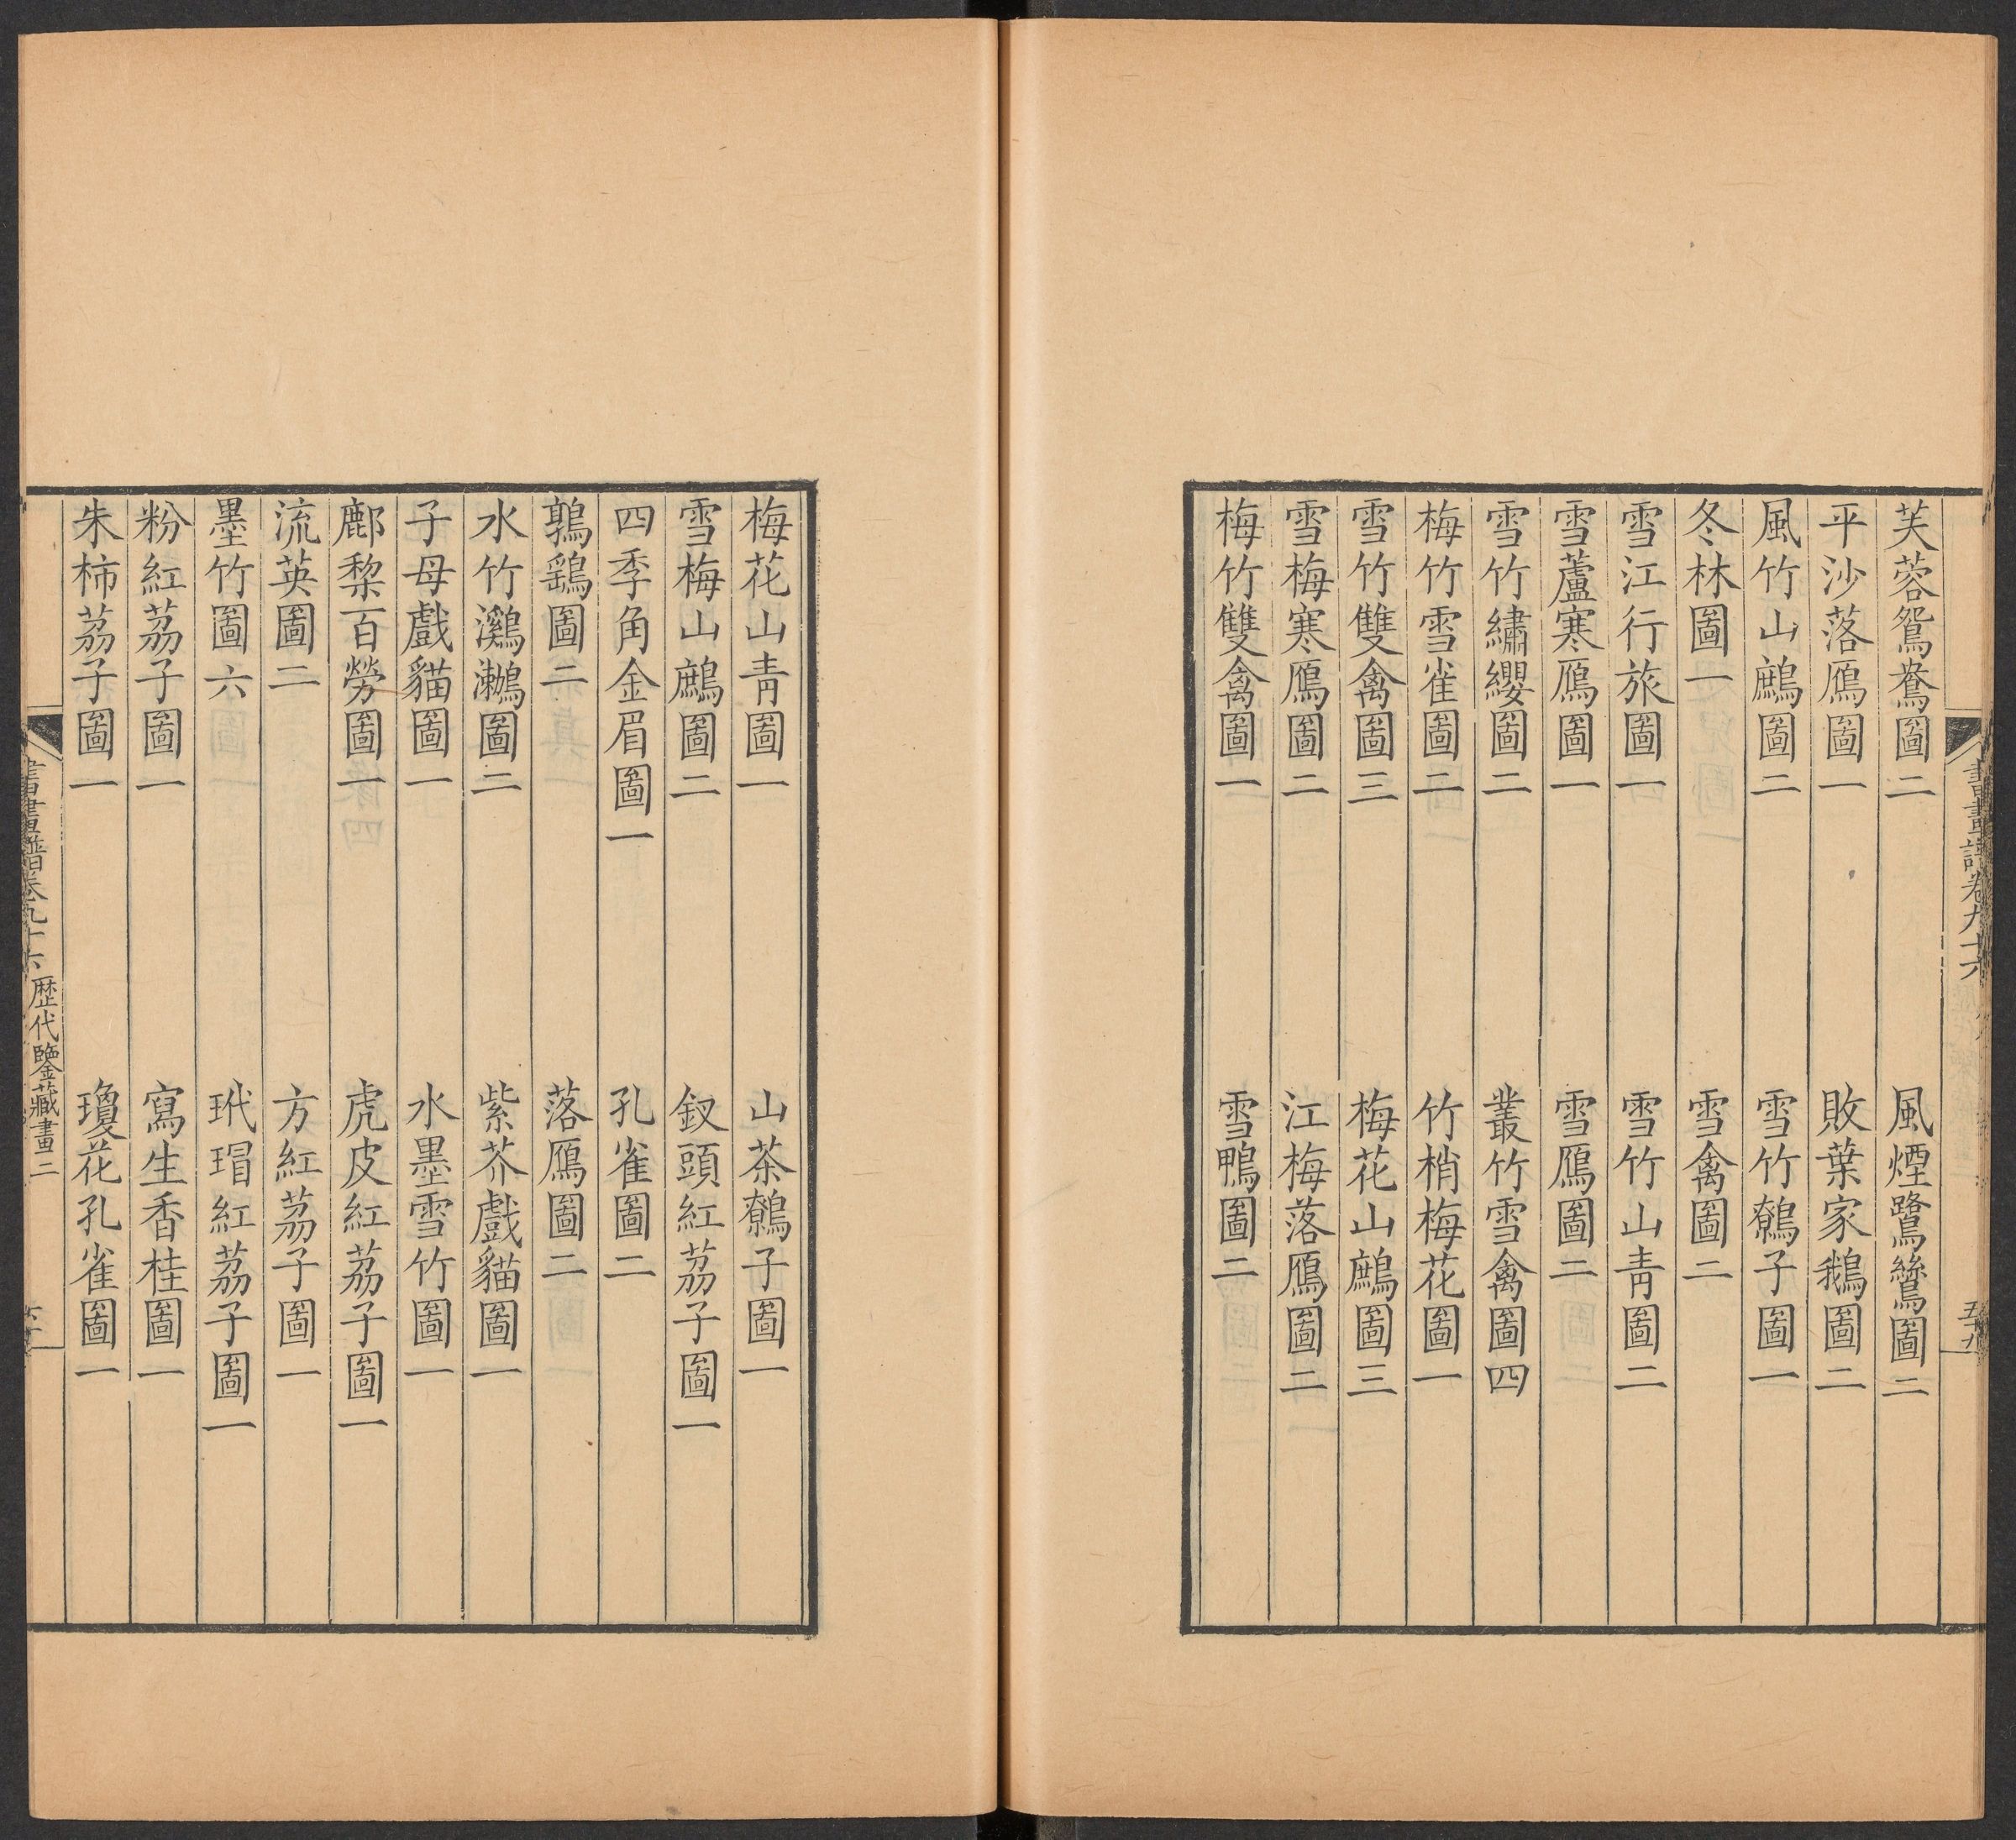 書畫譜卷九十六
五十九
芙蓉鴛鴦圖二　風煙鷺鷥圖二
平沙落鴈圖一　敗葉家鵝圖二
風竹山鷓圖二　雪竹鵵子圖一
冬林圖一　雪禽圖二
雪江行旅圖一　雪竹山青圖二
雪蘆寒鴈圖一　雪鴈圖二
雪竹繡纓圖二　叢竹雪禽圖四
梅竹雪雀圖二　竹梢梅花圖一
雪竹雙禽圖三　梅花山鷓圖三
雪梅寒鴈圖二　江梅落鴈圖二
梅竹雙禽圖一　雪鴨圖二
梅花山青圖一　山茶鵵子圖一
雪梅山鷓圖二　釵頭紅荔子圖一
四季角金眉圖一　孔雀圖二
鶉鷂圖二　落鴈圖二
水竹鸂鷘圖二　紫芥戲貓圖一
子母戲貓圖一　水墨雪竹圖一
鄜棃百勞圖一　虎皮紅荔子圖一
流英圖二　方紅荔子圖一
墨竹圖六　玳瑁紅荔子圖一
粉紅荔子圖一　寫生香桂圖一
朱柿荔子圖一　瓊花孔雀圖一
書畫譜卷九十六　歷代鑒藏畫二
六十